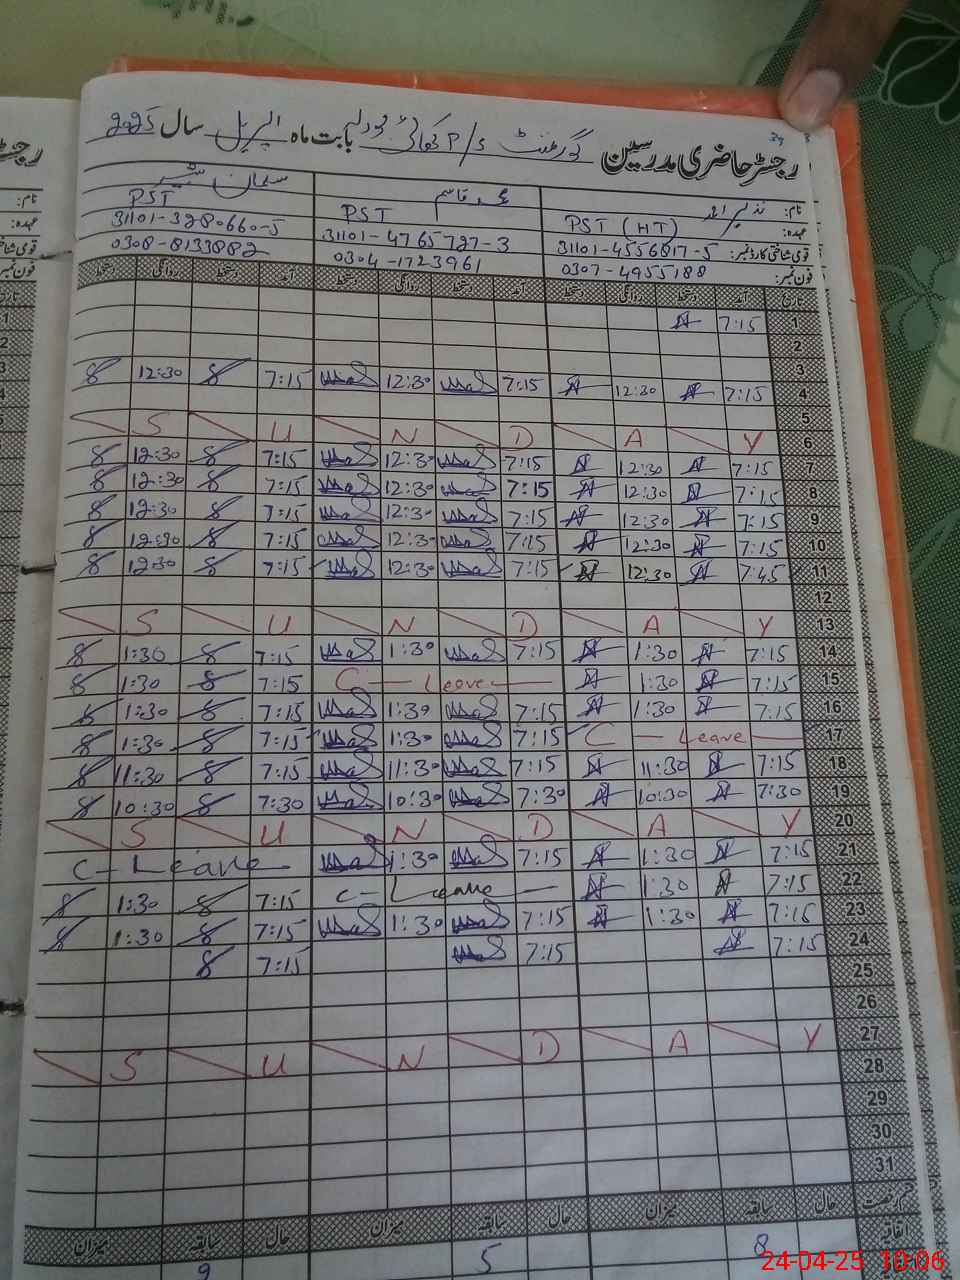 رجسٹر حاضری مدرسین گورنمنٹ P/S بابت ماہ اپریل سال 2025
نام: نذیر احمد محمد قاسم سلمان شبیر
عہدہ: PST (HT) PST PST
قومی شناختی کارڈ نمبر: 31101-4556817-5 31101-4765727-3 31101-3280660-5
فون نمبر: 0307-4955188 0304-1723961 0308-8133882
تاریخ آمد دستخط روانگی دستخط آمد دستخط روانگی دستخط آمد دستخط روانگی دستخط
1 7:15
2
3
4 7:15 12:30 7:15 12:30 7:15 12:30
5
6 S U N D A Y
7 7:15 12:30 7:15 12:30 7:15 12:30
8 7:15 12:30 7:15 12:30 7:15 12:30
9 7:15 12:30 7:15 12:30 7:15 12:30
10 7:15 12:30 7:15 12:30 7:15 12:30
11 7:45 12:30 7:15 12:30 7:15 12:30
12
13 S U N D A Y
14 7:15 1:30 7:15 1:30 7:15 1:30
15 7:15 1:30 C - Leave 7:15 1:30
16 7:15 1:30 7:15 1:30 7:15 1:30
17 C - Leave 7:15 1:30 7:15 1:30
18 7:15 11:30 7:15 11:30 7:15 11:30
19 7:30 10:30 7:30 10:30 7:30 10:30
20 S U N D A Y
21 7:15 1:30 7:15 1:30 C - Leave
22 7:15 1:30 C - Leave 7:15 1:30
23 7:15 1:30 7:15 1:30 7:15 1:30
24 7:15 7:15 7:15
25
26
27 S U N D A Y
28
29
30
31
حال سابقہ میزان حال سابقہ میزان حال سابقہ میزان
اتفاقیہ 8 5 9
24-04-25 10:06